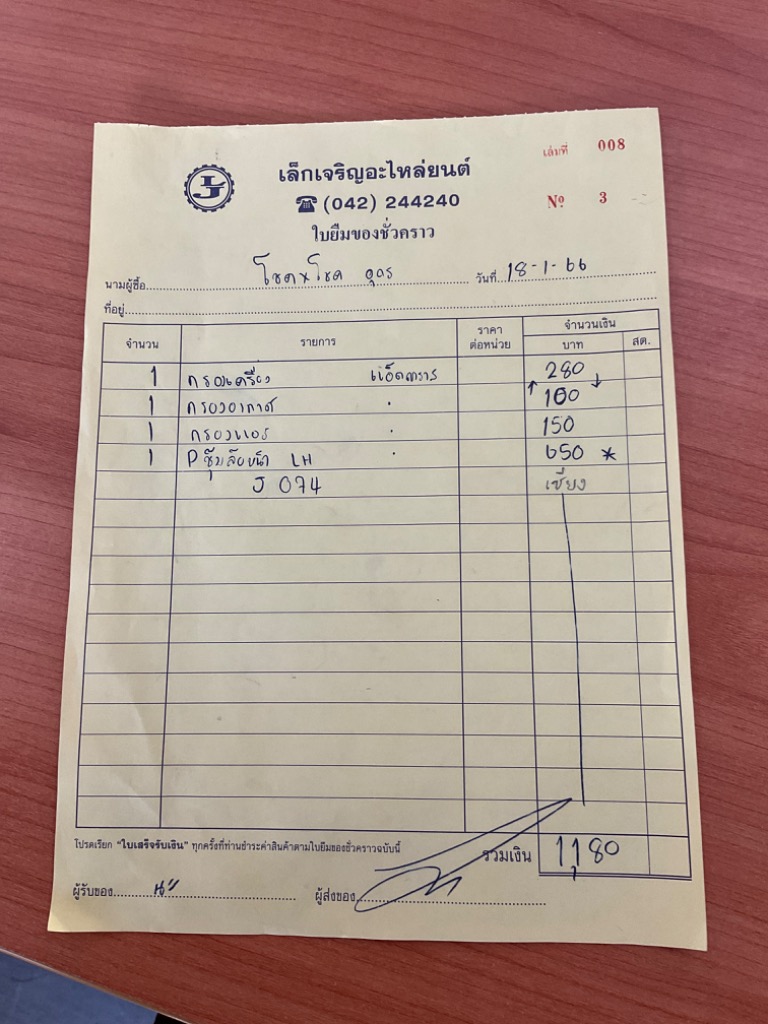 เล่มที่ 008
เล็กเจริญอะไหล่ยนต์
☎ (042) 244240
Nº 3
ใบยืมของชั่วคราว
นามผู้ซื้อ โชค x โชค อุดร วันที่ 18-1-66
ที่อยู่
จำนวน รายการ ราคาต่อหน่วย จำนวนเงิน
บาท สต.
1 กรองเครื่อง 280
1 กรองอากาศ 100
1 กรองแอร์ 150
1 P ซุ้มล้อหน้า LH 650 *
J 074
โปรดเรียก "ใบเสร็จรับเงิน" ทุกครั้งที่ท่านชำระค่าสินค้าตามใบยืมของชั่วคราวฉบับนี้
รวมเงิน 1180
ผู้รับของ ผู้ส่งของ